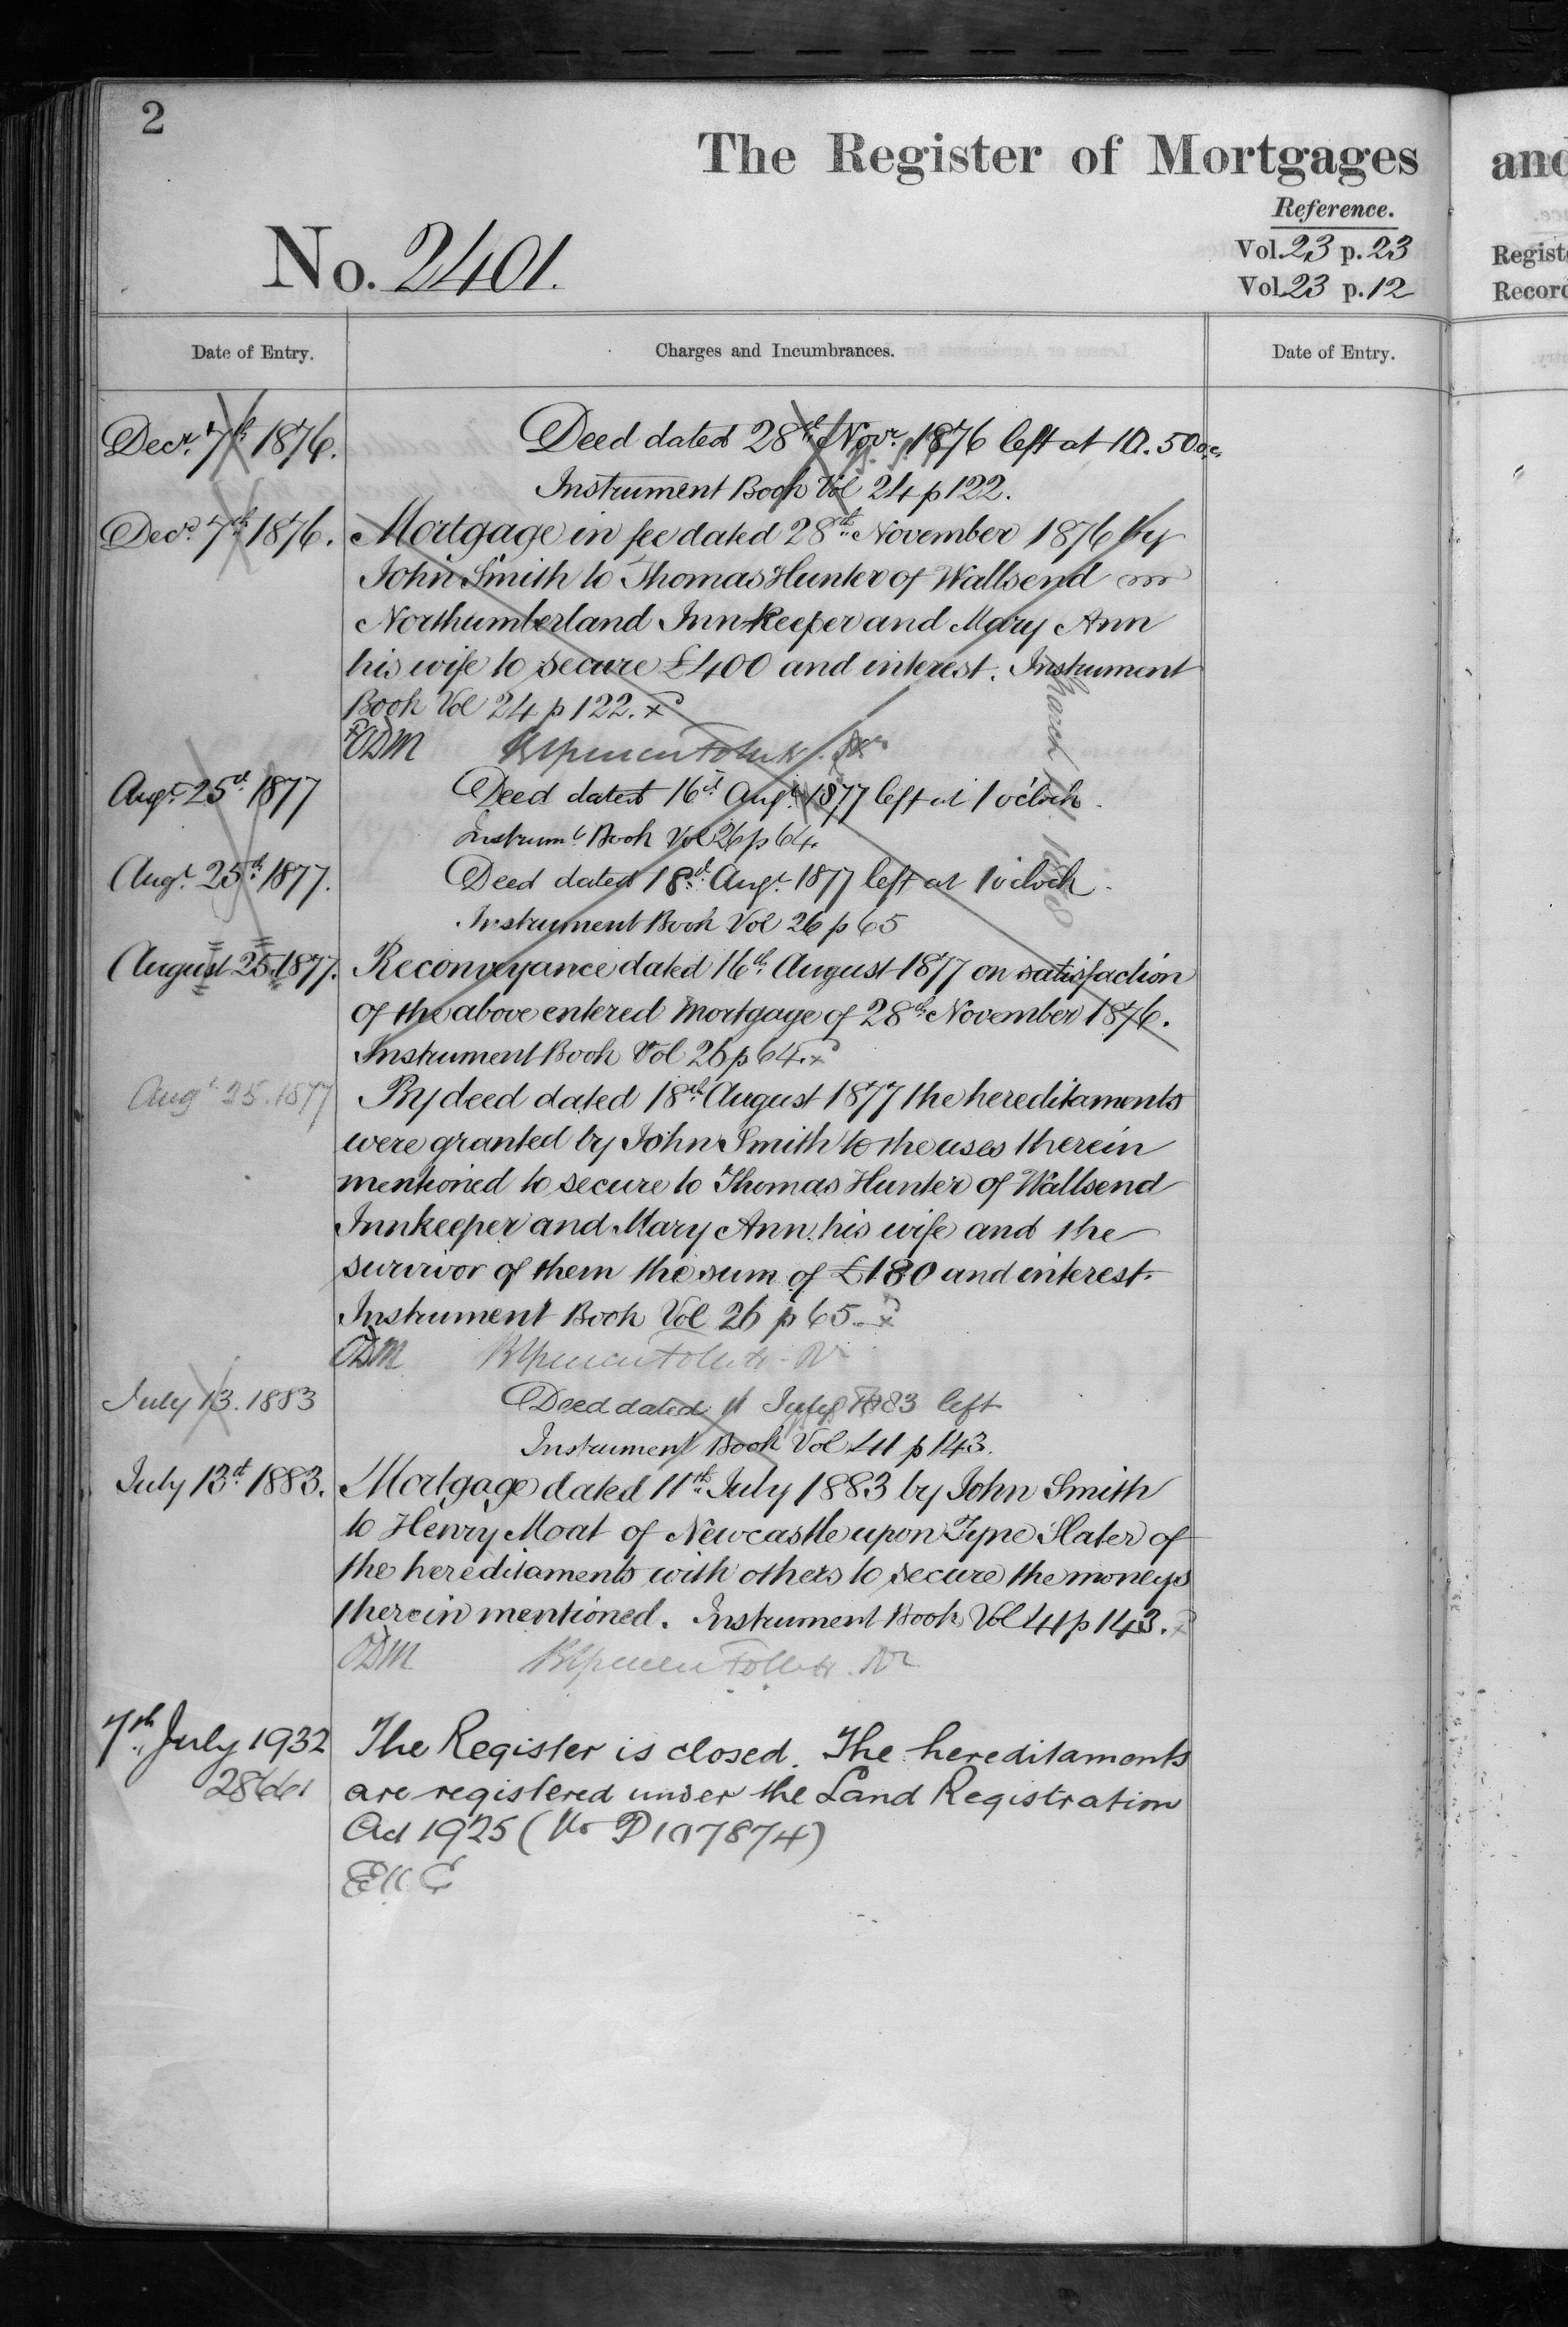 2
The Register of Mortgages
and
Reference.
No. 2401.
Vol. 23 p. 23
Vol. 23 p. 12
Date of Entry.
Charges and Incumbrances.
Date of Entry.
Decr. 7th 1876.
Deed dated 28th Novr. 1876 left at 10.50
Instrument Book Vol 24 p 122.
Decr. 7th 1876.
Mortgage in fee dated 28th November 1876 by
John Smith to Thomas Hunter of Wallsend in
Northumberland Innkeeper and Mary Ann
his wife to secure £400 and interest. Instrument
Book Vol 24 p 122.
ODM
Augt. 25th 1877
Deed dated 16th Augt. 1877 left at 1 o'clock.
Instrumt. Book Vol 26 p 64.
Augt. 25th 1877.
Deed dated 18th Augt. 1877 left at 1 o'clock.
Instrument Book Vol 26 p 65
August 25.1877.
Reconveyance dated 16th August 1877 on satisfaction
of the above entered Mortgage of 28th November 1876.
Instrument Book Vol 26 p 64.
Augt. 25.1877
By deed dated 18th August 1877 the hereditaments
were granted by John Smith to the uses therein
mentioned to secure to Thomas Hunter of Wallsend
Innkeeper and Mary Ann his wife and the
survivor of them the sum of £180 and interest.
Instrument Book Vol 26 p 65.
ODM
July 13.1883
Deed dated 11 July 1883 left
Instrument Book Vol 41 p 143.
July 13th 1883.
Mortgage dated 11th July 1883 by John Smith
to Henry Moat of Newcastle upon Tyne Slater of
the hereditaments with others to secure the moneys
therein mentioned. Instrument Book Vol 41 p 143.
ODM
7th July 1932
The Register is closed. The hereditaments
are registered under the Land Registration
Act 1925 (No P107874)